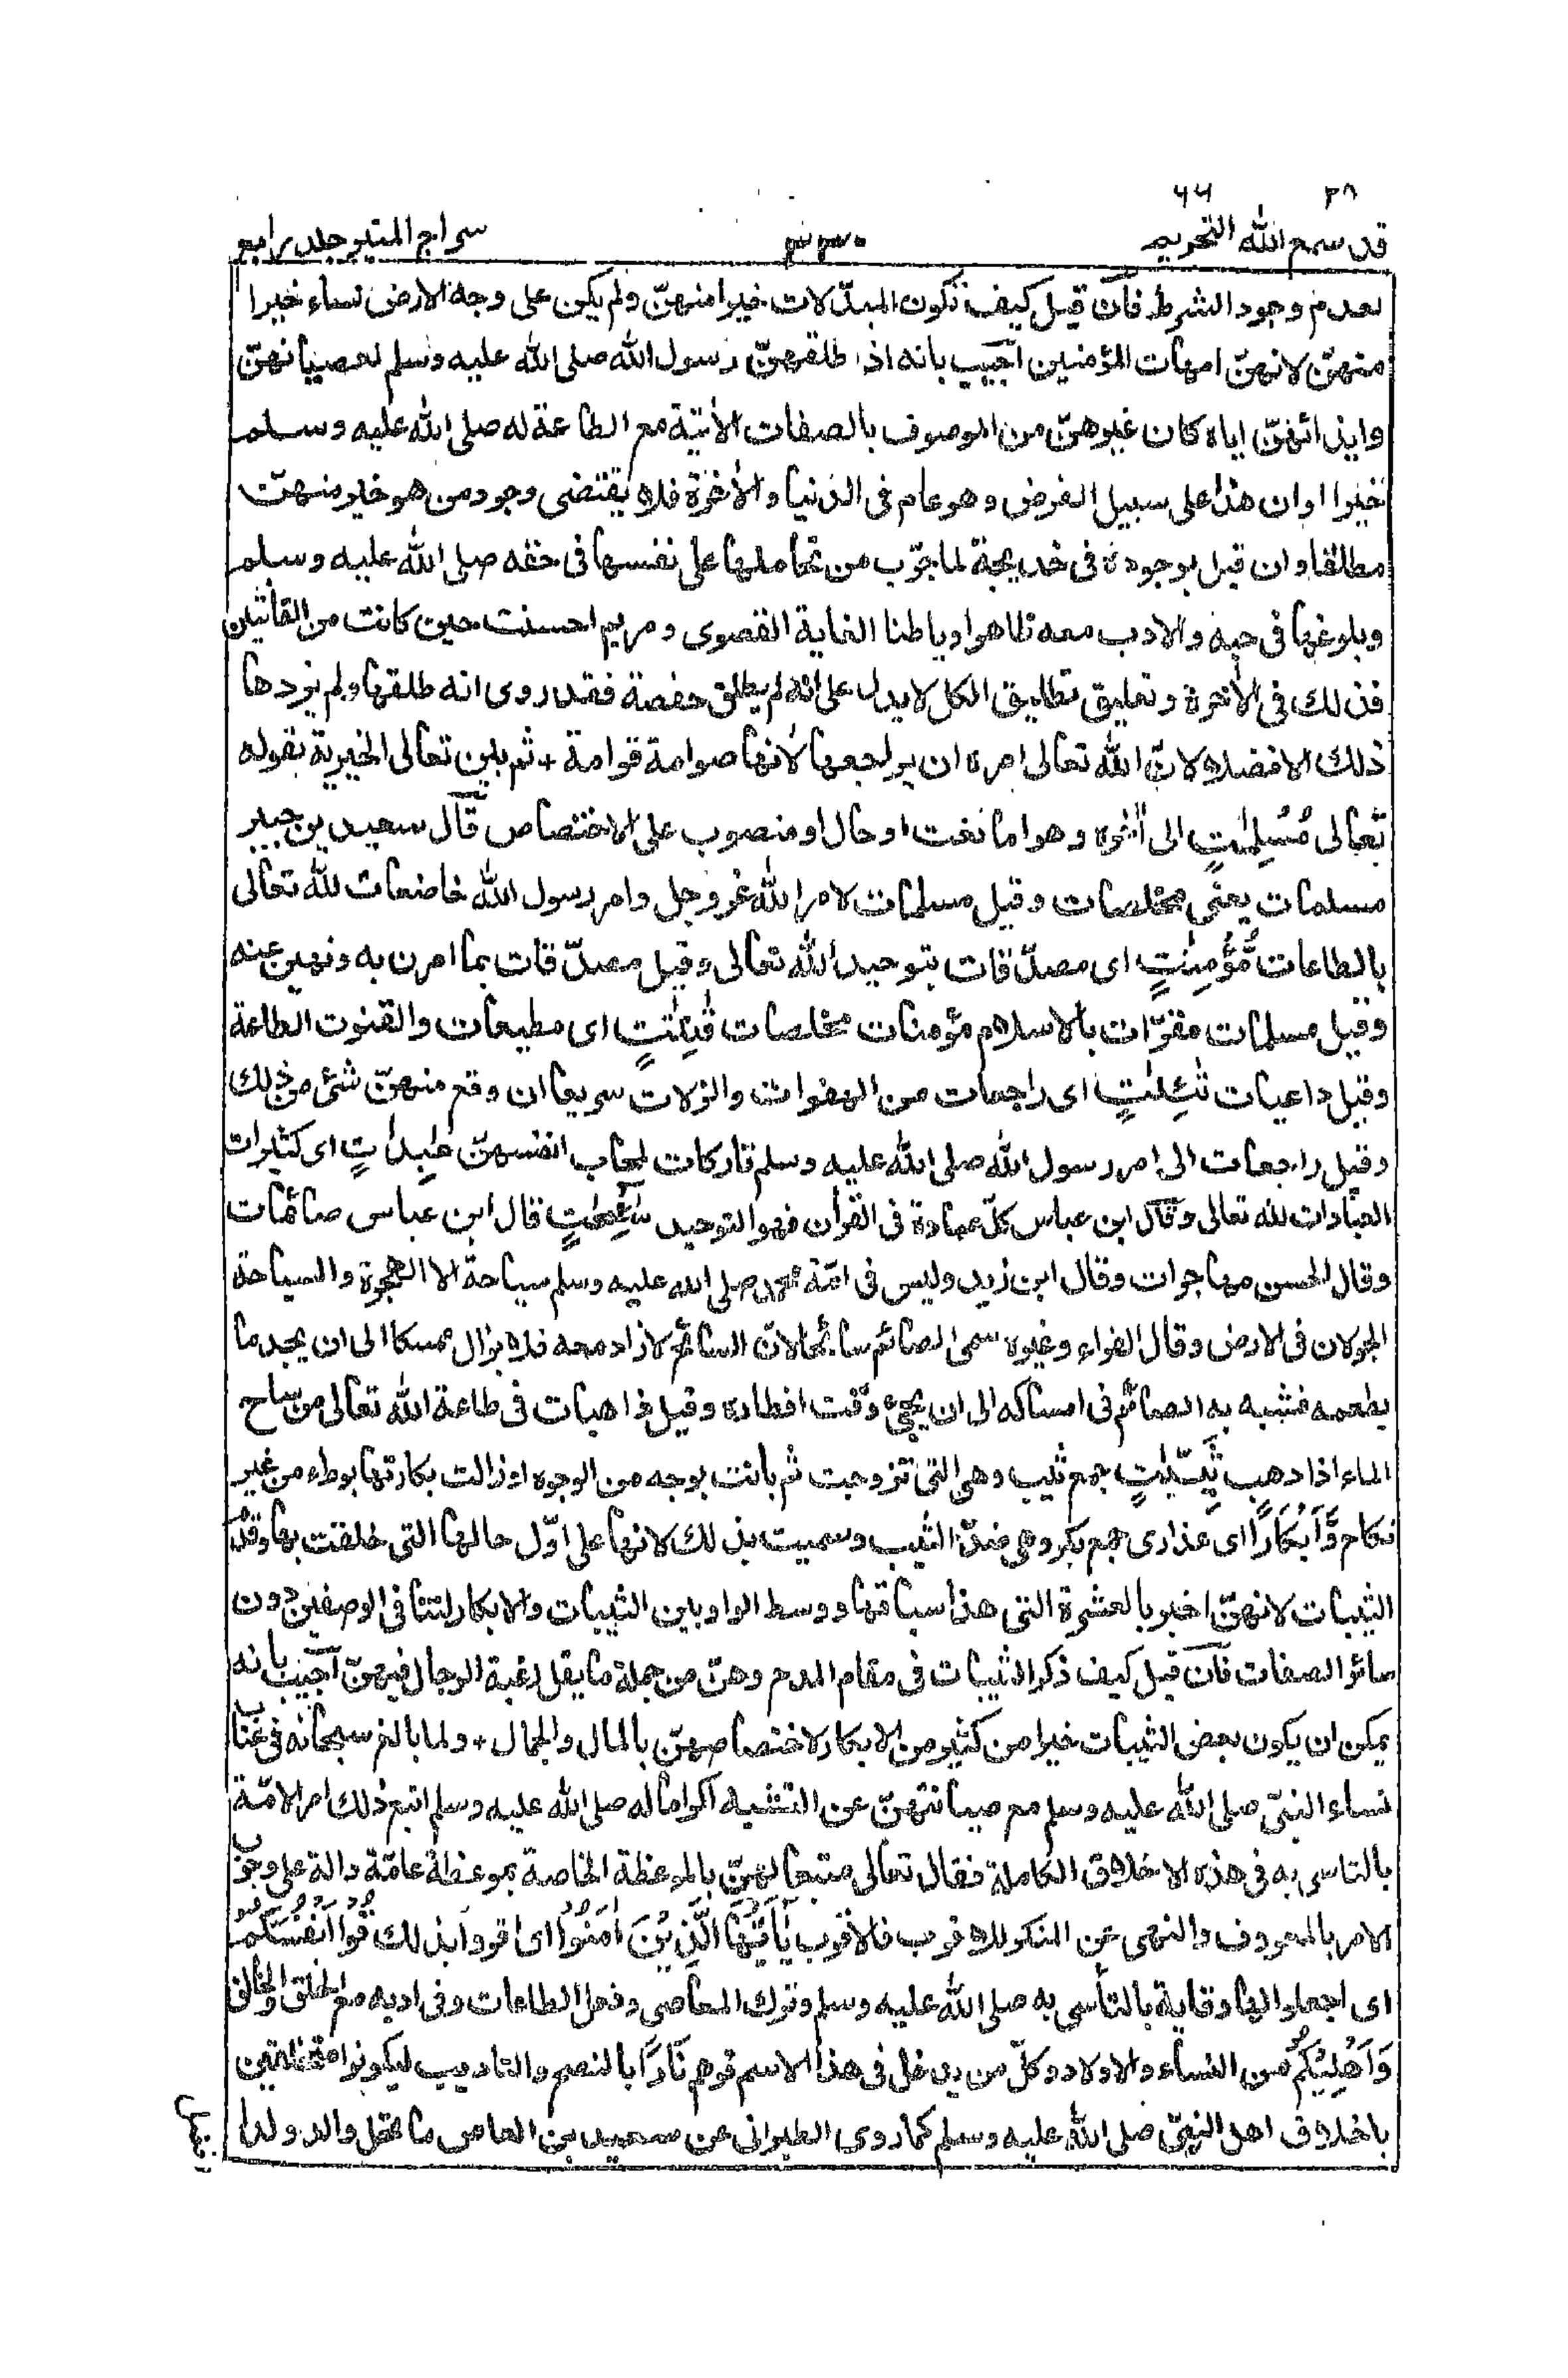 ٢٨ ٦٦
قد سمع الله التحريم ٣٣٠ سراج المنير جلد رابع
لعدم وجود الشرط فان قيل كيف تكون المبدّلات خيرا منهنّ ولم يكن على وجه الارض نساء خيرا
منهنّ لانهنّ امهات المؤمنين اجيب بانه اذا طلقهنّ رسول الله صلى الله عليه وسلم لعصيانهنّ
وايذائهنّ اياه كان غيرهنّ من الموصوف بالصفات الاٰتية مع الطاعة له صلى الله عليه وسلم
خيرا او ان هذا على سبيل الفرض وهو عام فى الدنيا والاٰخرة فلا يقتضى وجود من هو خير منهنّ
مطلقا وان قيل بوجوده فى خديجة لما جرّب من تحاملها على نفسها فى حقه صلى الله عليه وسلم
وبلوغها فى حبه والادب معه ظاهرا وباطنا الغاية القصوى ومريم احسنت حين كانت من القانتين
فذلك فى الاٰخرة وتعليق تطليق الكل لا يدل على انه لم يطلق حفصة فقد روى انه طلقها ولم يزدها
ذلك الا فضلا لانّ الله تعالى امره ان يراجعها لانها صوامة قوامة + ثم بين تعالى الخيرية بقوله
تعالى مُسْلِمٰتٍ الى اٰخره وهو اما نعت او حال او منصوب على الاختصاص قال سعيد بن جبير
مسلمات يعنى مخلصات وقيل مسلمات لامر الله عز وجل وامر رسول الله خاضعات لله تعالى
بالطاعات مُّؤْمِنٰتٍ اى مصدّقات بتوحيد الله تعالى وقيل مصدّقات بما امرن به ونهين عنه
وقيل مسلمات مقرّات بالاسلام مؤمنات مخلصات قٰنِتٰتٍ اى مطيعات والقنوت الطاعة
وقيل داعيات تٰئِبٰتٍ اى راجعات من الهفوات والزلات سريعا ان وقع منهنّ شئ من ذلك
وقيل راجعات الى امر رسول الله صلى الله عليه وسلم تاركات لمحاب انفسهنّ عٰبِدٰتٍ اى كثيرات
العبادات لله تعالى وقال ابن عباس كلّ عبادة فى القراٰن فهو التوحيد سٰئِحٰتٍ قال ابن عباس صائمات
وقال الحسن مهاجرات وقال ابن زيد وليس فى امّة محمد صلى الله عليه وسلم سياحة الا الهجرة والسياحة
الجولان فى الارض وقال الفراء وغيره سمى الصائم سائحا لانّ السائح لا زاد معه فلا يزال ممسكا الى ان يجد ما
يطعمه فشبه به الصائم فى امساكه الى ان يجئ وقت افطاره وقيل ذاهبات فى طاعة الله تعالى من ساح
الماء اذا ذهب ثَيِّبٰتٍ جمع ثيب وهى التى تزوجت ثم بانت بوجه من الوجوه او زالت بكارتها بوطء من غير
نكاح وَّاَبْكَارًا اى عذارى جمع بكر وهى ضدّ الثيب وسميت بذلك لانها على اوّل حالها التى خلقت بها وقدّم
الثيبات لانهنّ اخبر بالعشرة التى هذا سياقها ووسط الواو بين الثيبات والابكار لتنافى الوصفين دون
سائر الصفات فان قيل كيف ذكر الثيبات فى مقام المدح وهنّ من جملة ما يقل رغبة الرجال فيهنّ اجيب بانه
يمكن ان يكون بعض الثيبات خيرا من كثير من الابكار لاختصاصهنّ بالمال والجمال + ولما بالغ سبحانه فى عتاب
نساء النبىّ صلى الله عليه وسلم مع صيانتهنّ عن التشبه اكراما له صلى الله عليه وسلم اتبع ذلك امر الامّة
بالتاسى به فى هذه الاخلاق الكاملة فقال تعالى متبعا لهنّ بالموعظة الخاصة بموعظة عامّة دالة على وجوب
الامر بالمعروف والنهى عن المنكر للاقرب فالاقرب يٰاَيُّهَا الَّذِيْنَ اٰمَنُوْا اى اقروا بذلك قُوْا اَنْفُسَكُمْ
اى اجعلوا لها وقاية بالتأسى به صلى الله عليه وسلم وترك المعاصى وفعل الطاعات وفى ادبه مع الخلق والخالق
وَاَهْلِيْكُمْ من النساء والاولاد وكلّ من يدخل فى هذا الاسم قوهم نَارًا بالنصح والتاديب ليكونوا متخلقين
باخلاق اهل النبىّ صلى الله عليه وسلم كما روى الطبرانى عن سعيد بن العاص ما نحل والد ولدا